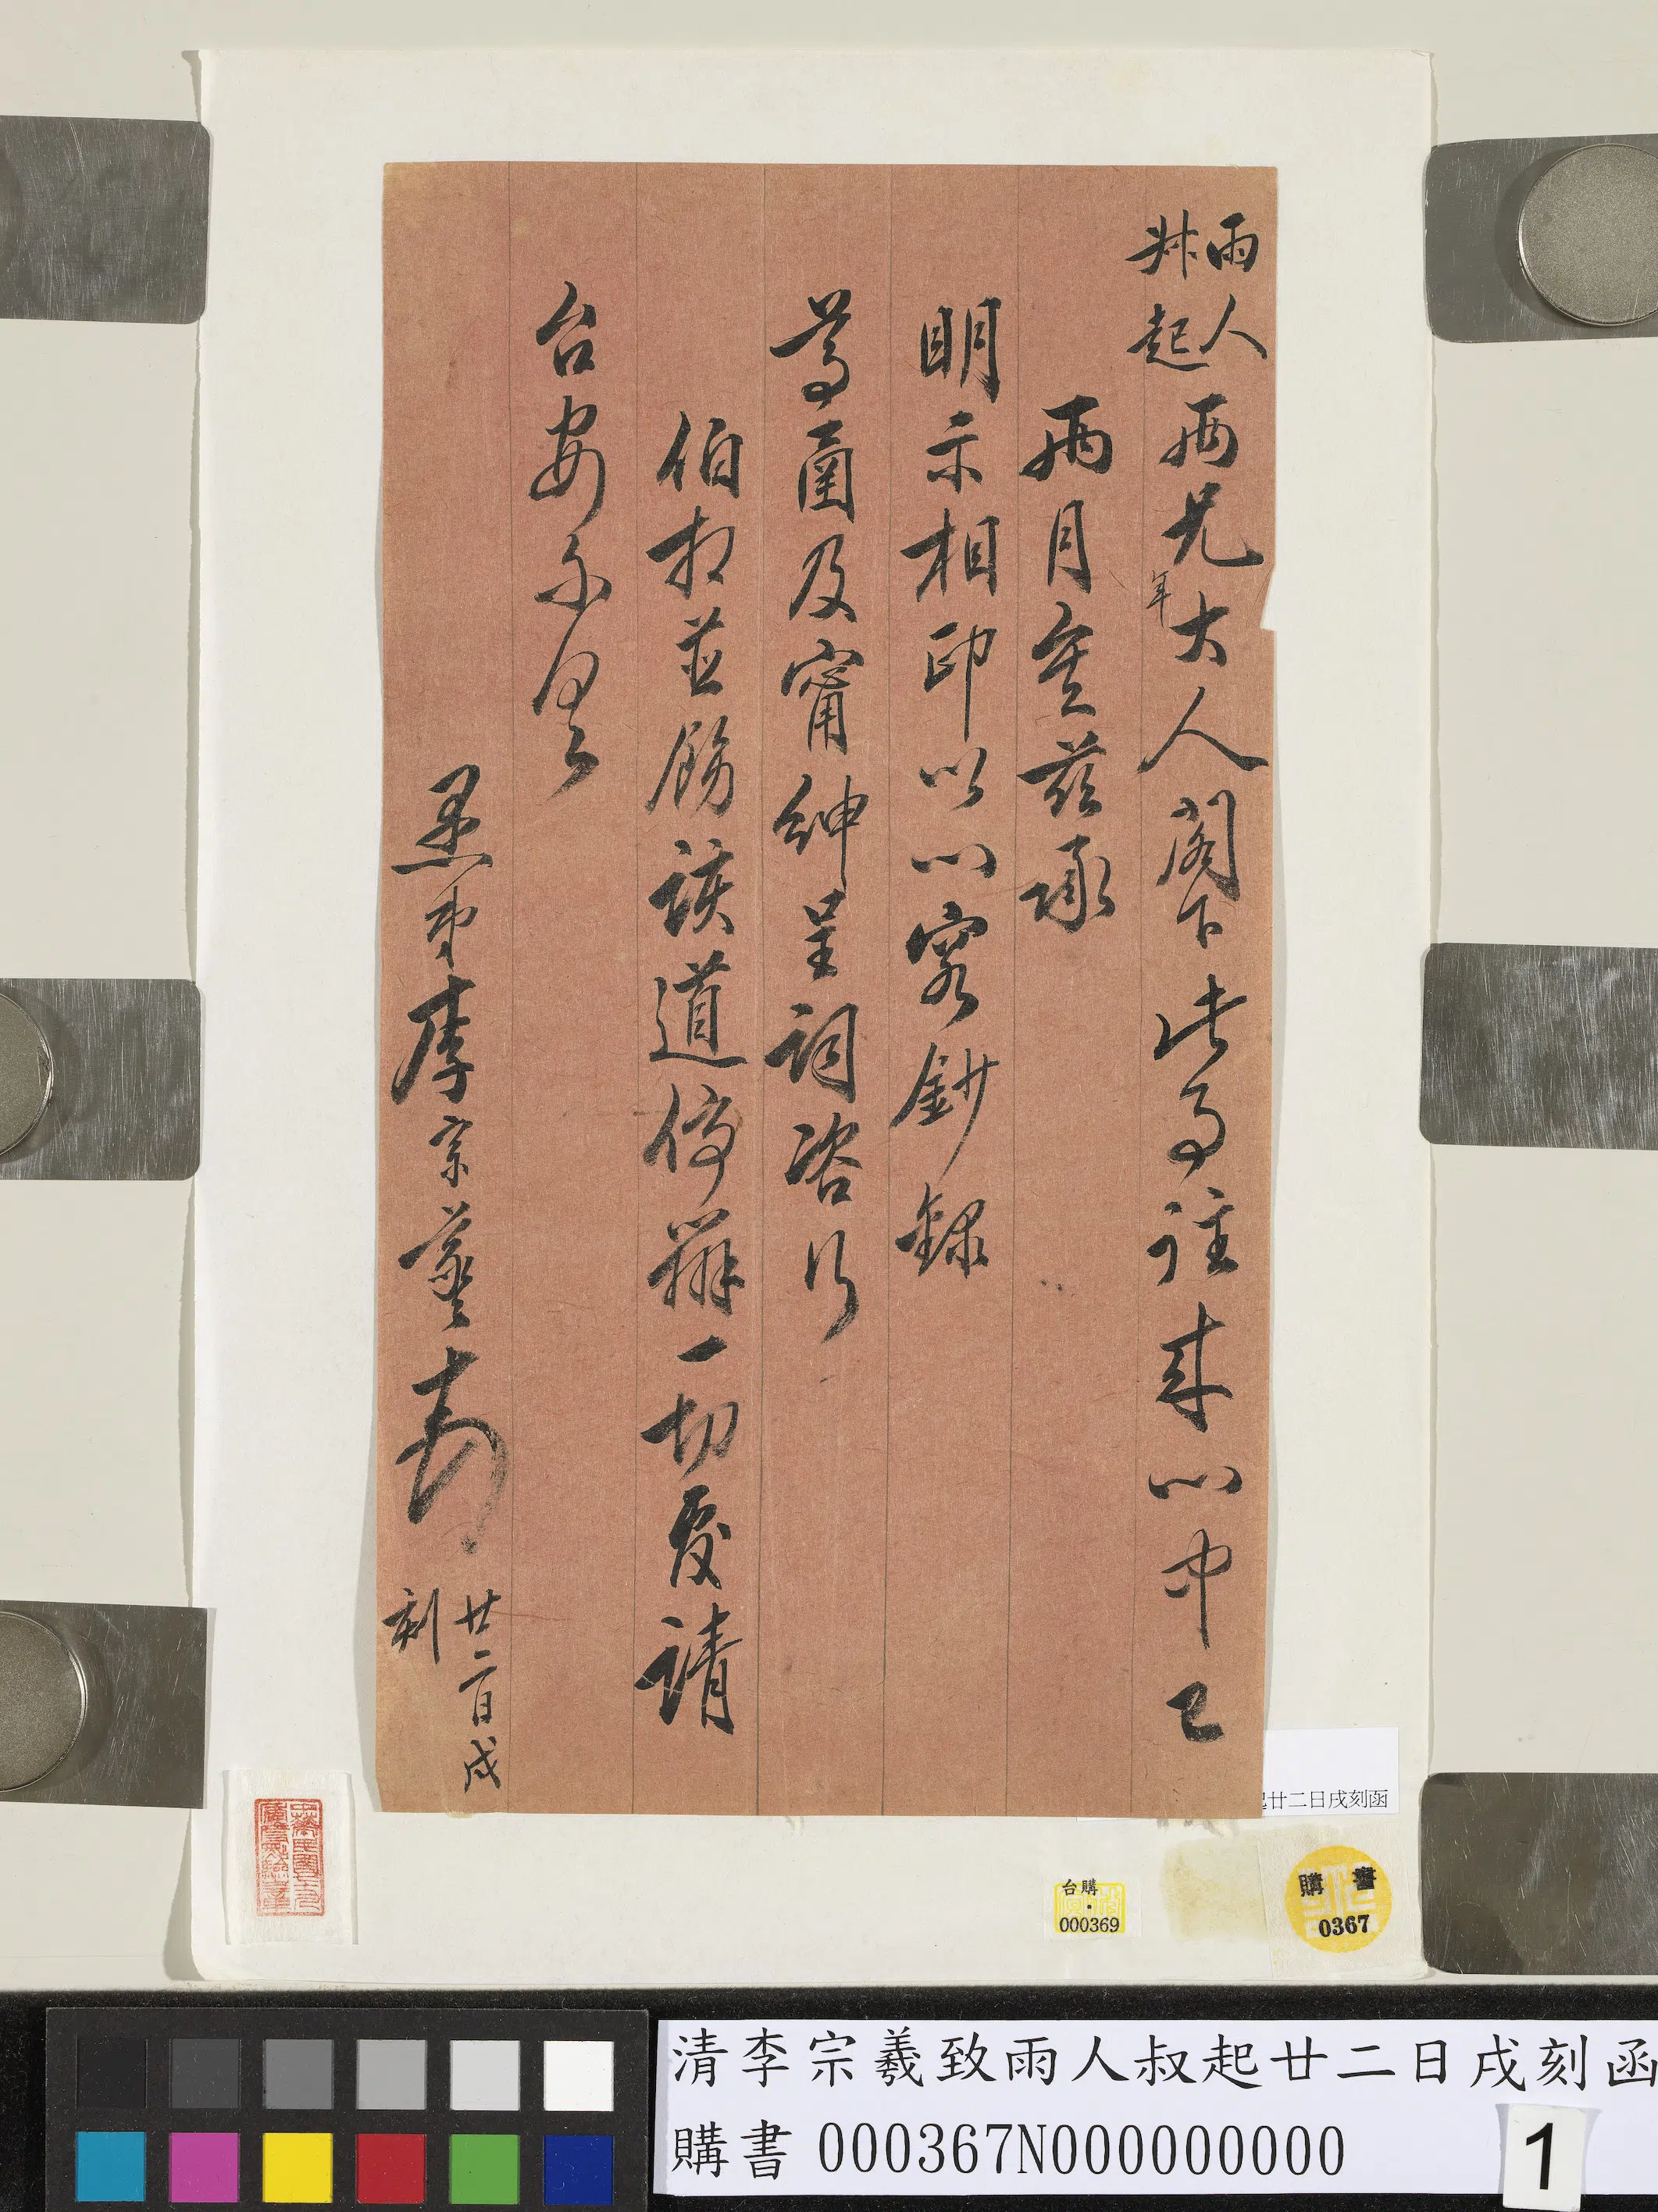 雨人
叔起
兩兄年大人閣下此事往來心中已
兩月矣茲承
明示相印以心容鈔錄
尊函及甯紳呈詞咨行
伯相並飭該道停辦一切覆請
台安
愚弟李宗羲頓首
廿二日戌
刻
起廿二日戌刻函
台購
000369
購書
0367
清李宗羲致雨人叔起廿二日戌刻函
購書 000367N000000000
1